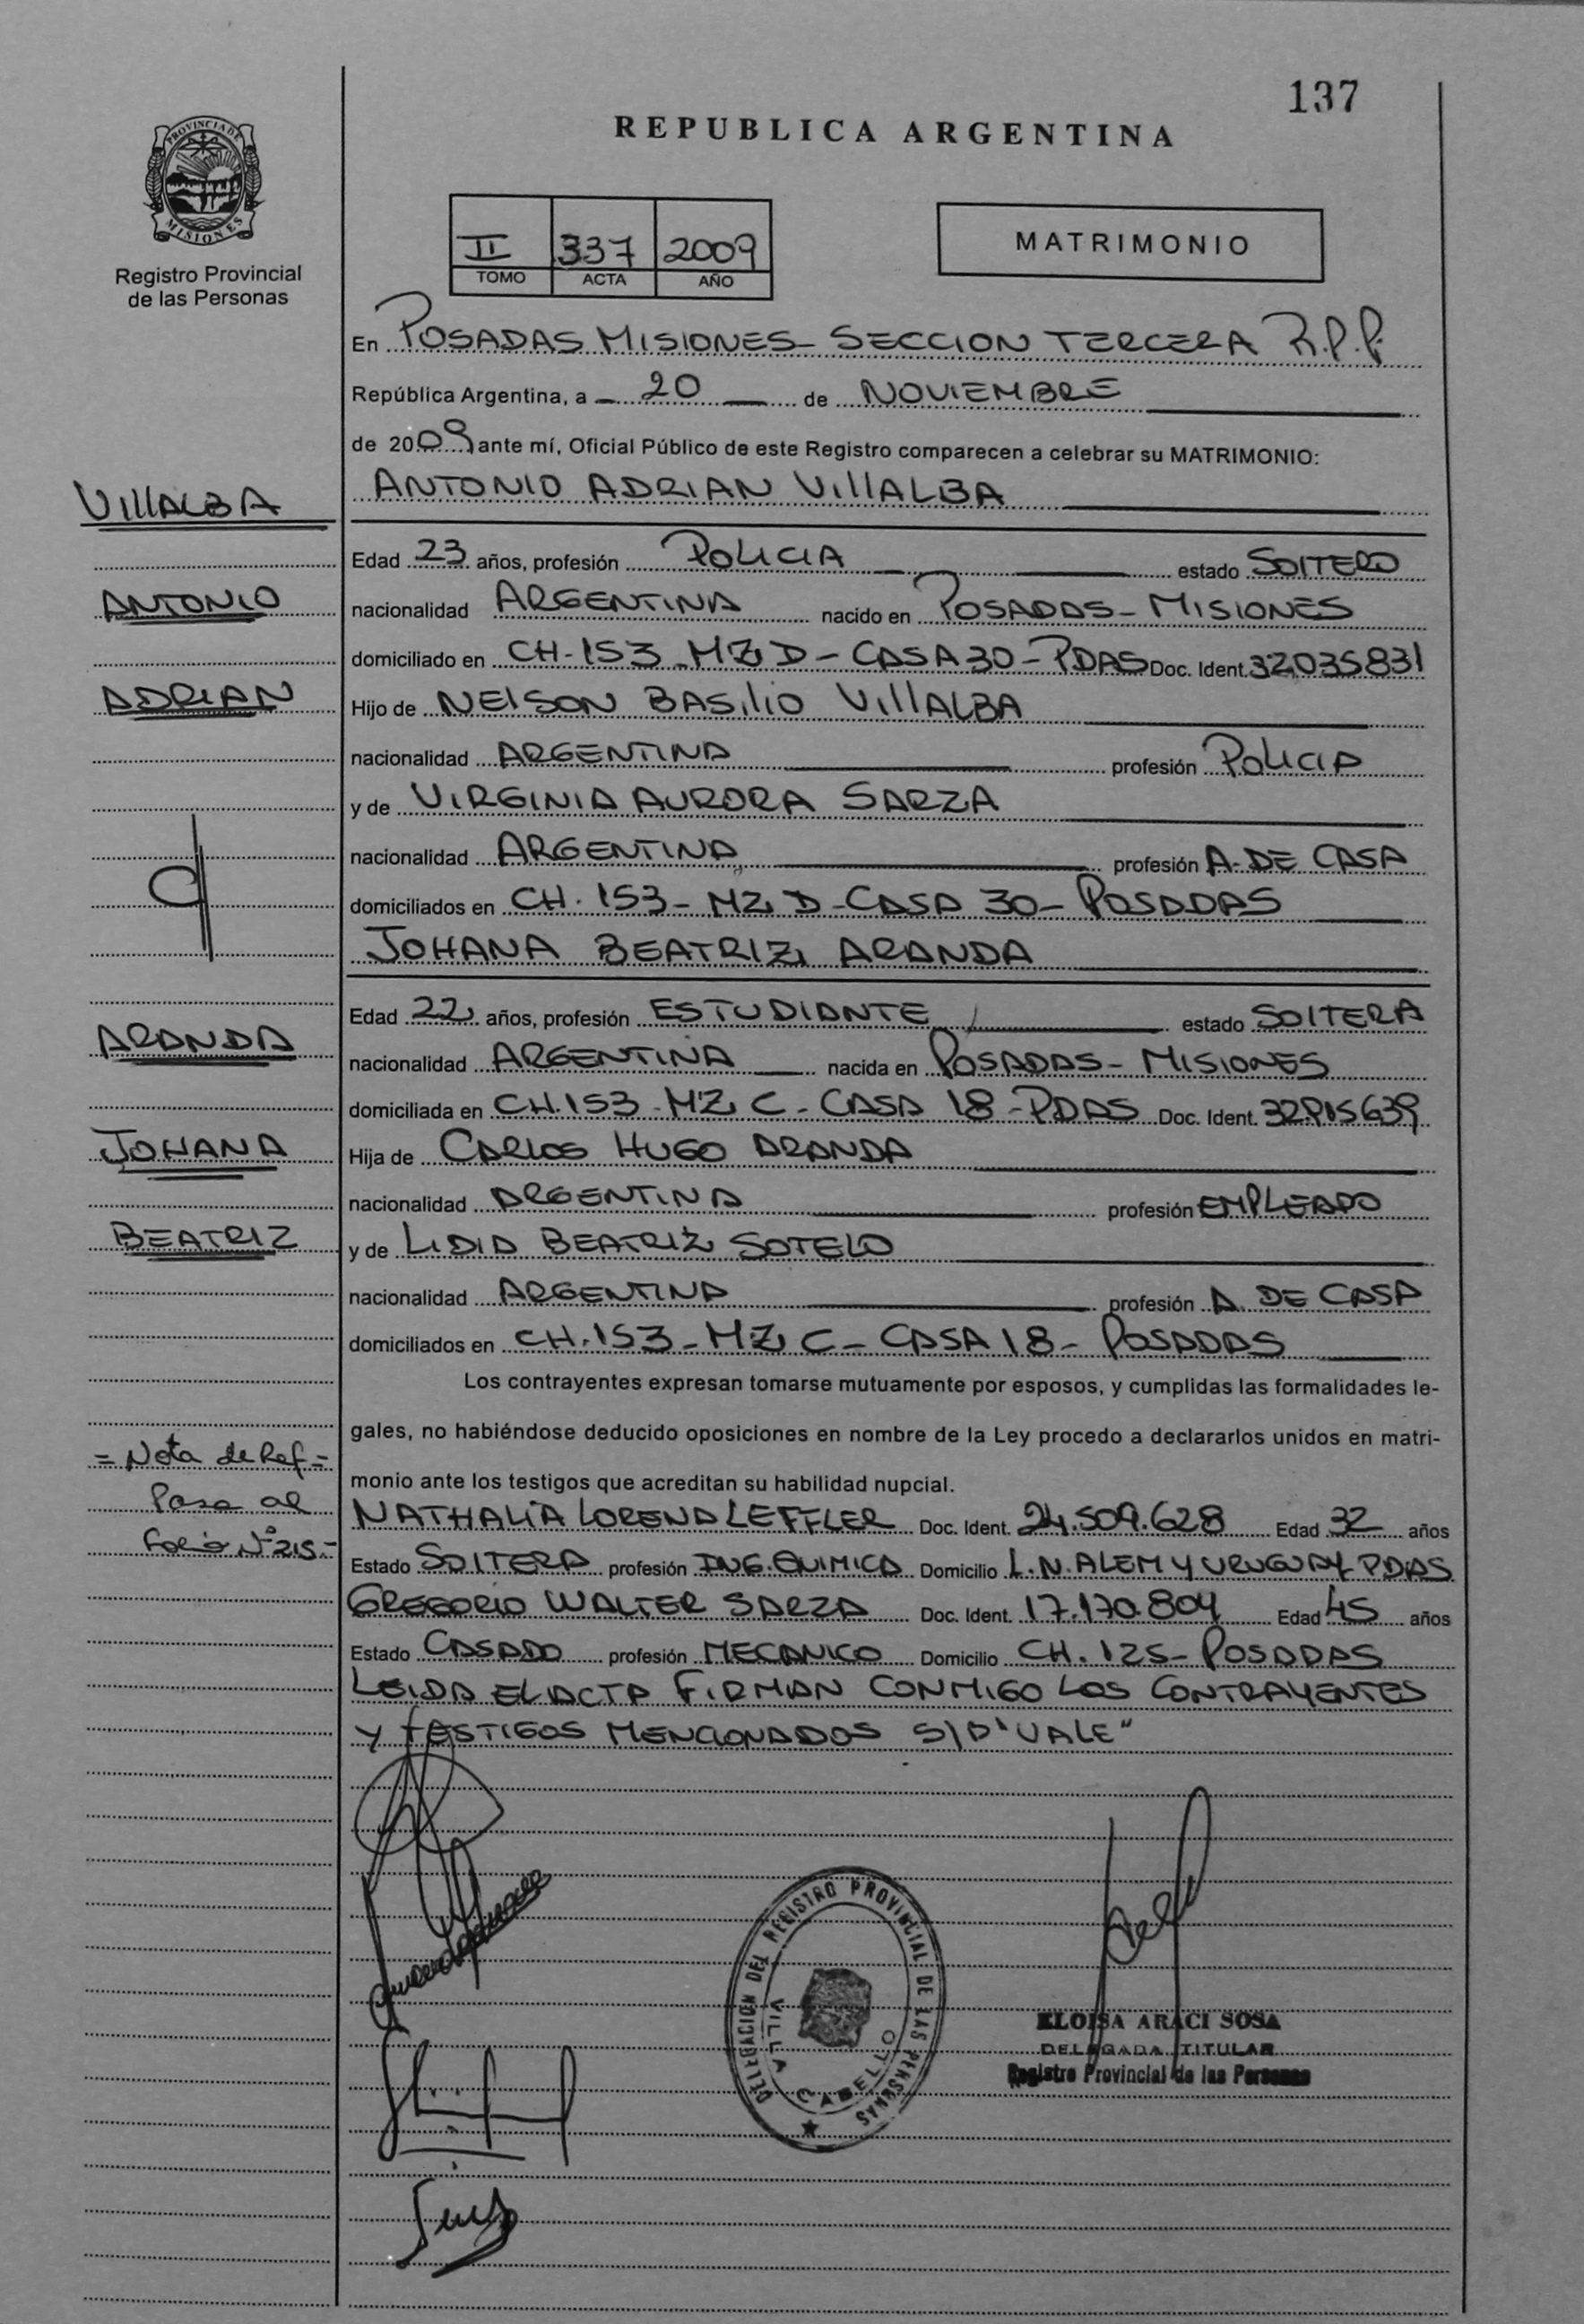 137
REPUBLICA ARGENTINA
PROVINCIA DE
MISIONES
Registro Provincial
de las Personas
II 337 2009
TOMO ACTA AÑO
MATRIMONIO
En POSADAS MISIONES- SECCION TERCERA R.P.P.
República Argentina, a - 20 - de NOVIEMBRE
de 2009 ante mí, Oficial Público de este Registro comparecen a celebrar su MATRIMONIO:
VIllALBA
ANTONIO ADRIAN VIllALBA
Edad 23 años, profesión POLICIA estado SOlTERO
ANTONIO
nacionalidad ARGENTINA nacido en POSADAS- MISIONES
domiciliado en CH-153 - MZ D - CASA 30 - PDAS Doc. Ident. 32.035831
ADRIAN
Hijo de NElSON BASIlIO VIllALBA
nacionalidad ARGENTINA profesión POLICIA
y de VIRGINIA AURORA SARZA
nacionalidad ARGENTINA profesión A. DE CASA
domiciliados en CH. 153- MZ D - CASA 30- POSADAS
JOHANA BEATRIZ ARANDA
Edad 22 años, profesión ESTUDIANTE estado SOlTERA
ARANDA
nacionalidad ARGENTINA nacida en POSADAS- MISIONES
domiciliada en CH.153 - MZ C - CASA 18 - PDAS Doc. Ident. 32.915639
JOHANA
Hija de CARLOS HUGO ARANDA
nacionalidad ARGENTINA profesión EMPLEADO
BEATRIZ
y de LIDIA BEATRIZ SOTELO
nacionalidad ARGENTINA profesión A. DE CASA
domiciliados en CH.153 - MZ C - CASA 18 - POSADAS
Los contrayentes expresan tomarse mutuamente por esposos, y cumplidas las formalidades le-
gales, no habiéndose deducido oposiciones en nombre de la Ley procedo a declararlos unidos en matri-
= Nota de Ref =
monio ante los testigos que acreditan su habilidad nupcial.
Pasa al
NATHALIA LORENA LEFFLER Doc. Ident. 24.509.628 Edad 32 años
Folio N° 215.-
Estado SOlTERA profesión ING. QUIMICA Domicilio L.N. ALEM Y URUGUAY PDAS
GREGORIO WALTER SARZA Doc. Ident. 17.170.804 Edad 45 años
Estado CASADO profesión MECANICO Domicilio CH. 125- POSADAS
LEIDA EL ACTA FIRMAN CONMIGO LOS CONTRAYENTES
Y TESTIGOS MENCIONADOS S/D "VALE"
DELEGACION DEL REGISTRO PROVINCIAL DE LAS PERSONAS
VILLA CABELLO
ELOISA ARACI SOSA
DELEGADA TITULAR
Registro Provincial de las Personas